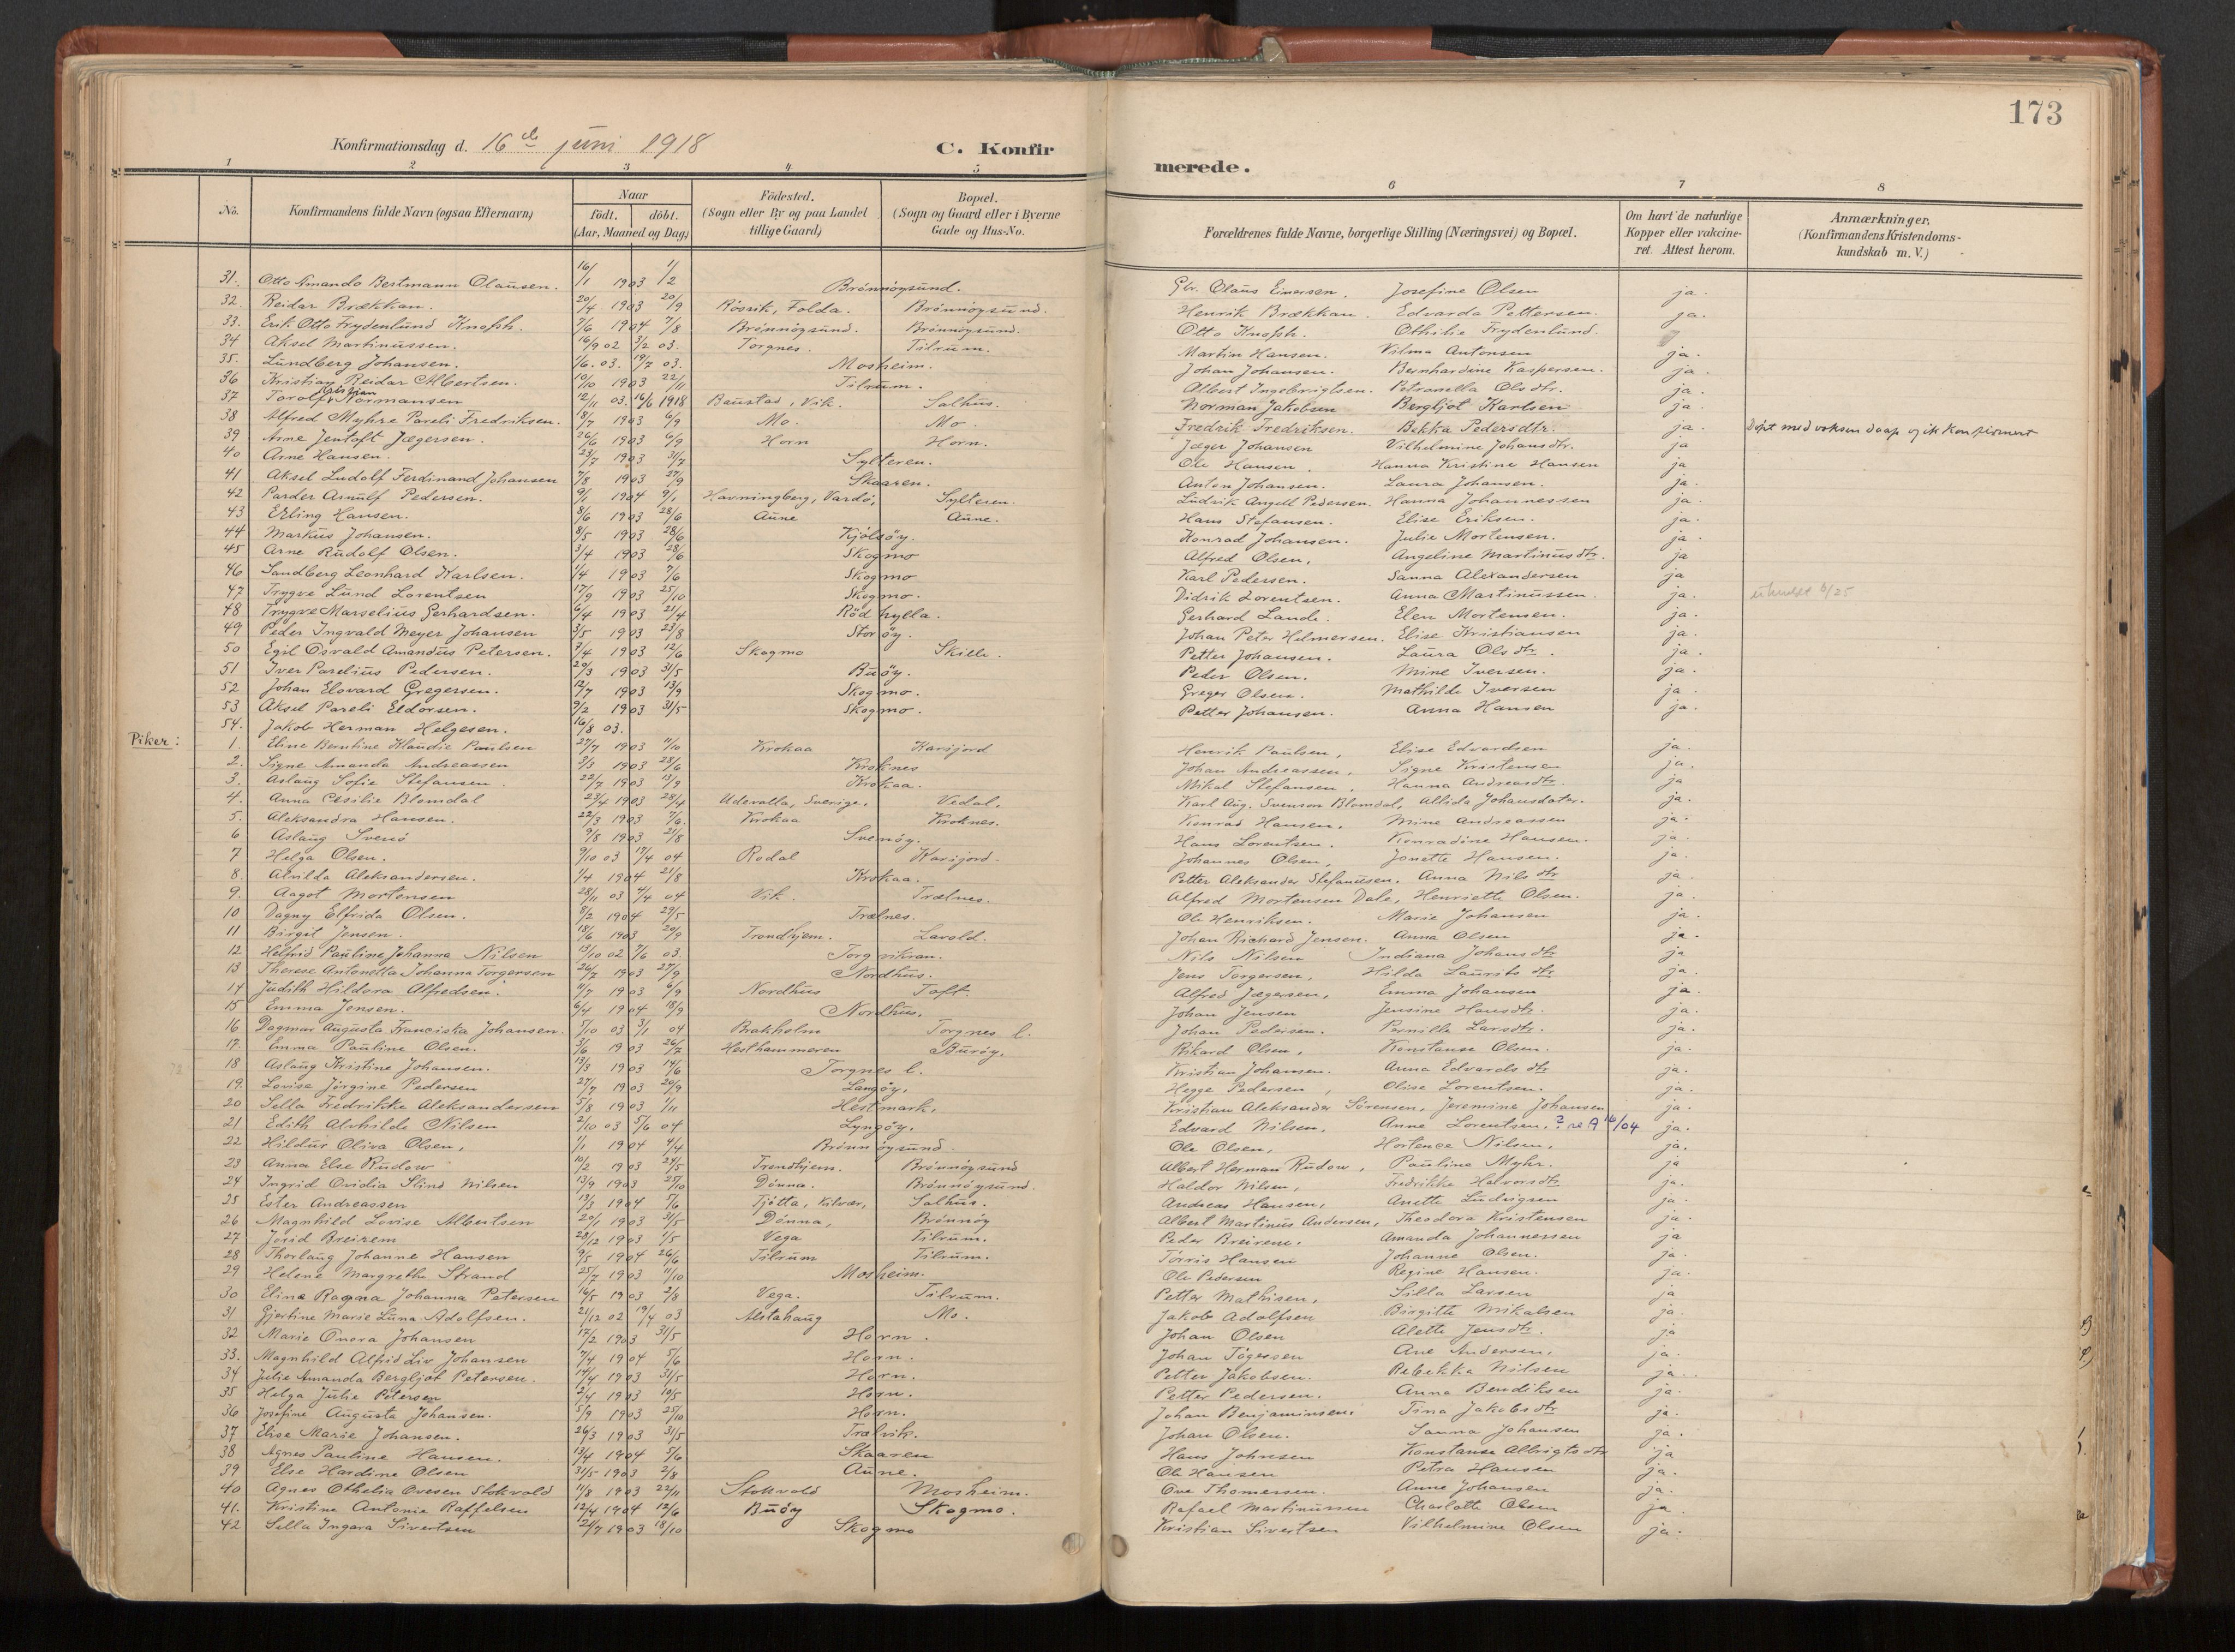 173
Konfirmationsdag d. 16de juni 1918
C. Konfirmerede.
1 2 3 4 5 6 7 8
No. Konfirmandens fulde Navn (ogsaa Efternavn) Naar födt. döbt. (Aar, Maaned og Dag) Födested. (Sogn eller By og paa Landet tillige Gaard) Bopæl. (Sogn og Gaard eller i Byerne Gade og Hus-No. Forældrenes fulde Navne, borgerlige Stilling (Næringsvei) og Bopæl. Om havt de naturlige Kopper eller vakcineret. Attest herom. Anmærkninger. (Konfirmandens Kristendomskundskab m. V.)
31. Otto Amando Bertmann Olausen. 16/1 1903 1/2 Brönnöysund. Olaus Einersen, Josefine Olsen ja.
32. Reidar Brækkan. 20/4 1903 20/9 Rösvik, Folda. Brönnöysund. Henrik Brækkan. Edvarda Pettersen. ja.
33. Erik Otto Frydenlund Knoph. 7/6 1904 7/8 Brönnöysund. Brönnöysund. Otto Knoph. Othilie Frydenlund.
34 Aksel Martinussen. 16/9 02 3/2 03. Torgnes. Tilrum. Martin Hansen. Vilma Antonsen ja.
35. Lundberg Johansen. 1/6. 03. 19/7 03. Mosheim. Johan Johansen. Bernhardine Kaspersen. ja.
36 Kristian Reidar Albertsen. 10/10 1903 22/11 Tilrum. Albert Ingebrigtsen. Petronella Olsdtr. ja.
37 Torolf Normansen 12/11 03. 16/6 1918 Baustad, Vik. Salhus. Norman Jakobsen Bergljot Karlsen ja.
38 Alfred Myhre Pareli Fredriksen. 18/7 1903 6/9 Mo. Mo. Fredrik Fredriksen. Bekka Pedersdtr. ja. Döpt med voksen daap og ik konfirmert
39 Arne Jentoft Jægersen. 26/6 1903 6/9 Horn Horn. Jæger Johansen Vilhelmine Johansdtr. ja
40 Arne Hansen. 23/7 1903 31/7 Sylteren. Ole Hansen. Hanna Kristine Hansen ja
41 Aksel Ludolf Ferdinand Johansen 7/8 1903 27/9 Skaaren. Anton Johansen. Laura Johansen. ja.
42 Parder Arnulf Pedersen. 9/1 1904 9/1 Havningberg, Vardö, Sylteren. Ludvik Angell Pedersen. Hanna Johannessen ja.
43 Erling Hansen. 8/6 1903 28/6 Aune Aune. Hans Stefansen. Elise Eriksen. ja.
44 Markus Johansen. 8/5 1903 28/6 Kjölsöy. Konrad Johansen. Julie Mortensen. ja.
45 Arne Rudolf Olsen. 3/4 1903 28/6 Skogmo Alfred Olsen, Angeline Martinusdtr. ja
46 Sandberg Leonhard Karlsen. 1/4 1903 7/6 Skogmo Karl Pedersen. Sanna Alexandersen ja
47 Trygve Lund Lorentsen 17/9 1903 25/10 Skogmo. Didrik Lorentsen. Anna Martinussen. ja.
48 Trygve Marselius Gerhardsen. 6/4 1903 21/4 Rödhylla. Gerhard Lande. Elen Mortensen. ja.
49 Peder Ingvald Meyer Johansen 3/5 1903 23/8 Storöy. Johan Peter Helmersen. Elise Kristiansen ja.
50 Egil Osvald Amandus Petersen. 3/4 1903 12/6 Skogmo Skille. Petter Johansen. Laura Olsdtr. ja.
51 Iver Parelius Pedersen. 20/3 1903 31/5 Buöy. Peder Olsen. Mine Iversen. ja.
52 Johan Elovard Gregersen. 12/7 1903 13/9 Skogmo. Greger Olsen. Mathilde Iversen ja.
53 Aksel Pareli Eldorsen. 9/2 1903 31/5 Skogmo. Petter Johansen. Anna Hansen ja.
54. Jakob Herman Helgesen. 16/8 03.
Piker:
1. Eline Berntine Klaudie Paulsen 27/7 1903 11/10 Krokaa Karijord Henrik Paulsen, Elise Edvardsen ja.
2. Signe Amanda Andreassen 3/3 1903 28/6 Kroknes Johan Andreassen, Signe Kristensen ja.
3. Aslaug Sofie Stefansen 22/7 1903 13/9 Krokaa. Mikal Stefansen, Hanna Andreasdtr. ja
4. Anna Cesilie Blomdal 23/4 1903 28/4 Udevalla, Sverige. Vedal. Karl Aug. Svenson Blomdal, Altida Johansdater. ja.
5. Aleksandra Hansen. 22/3 1903 7/6. Krokaa Kroknes. Konrad Hansen, Mine Andreassen ja.
6 Aslaug Svenö 9/8 1903 21/8 Svenöy. Hans Lorentsen. Konradine Hansen. ja.
7 Helga Olsen. 9/10 03 17/4 04 Rodal Karijord. Johannes Olsen, Jonette Hansen. ja.
8. Alvilda Aleksandersen. 1/4 1904 21/8 Krokaa. Petter Aleksander Stefansen. Anna Nilsdtr ja.
9. Aagot Mortensen 28/11 03 4/4 04 Vik. Trælnes. Alfred Mortensen Dale, Henriette Olsen. ja.
10 Dagny Elfrida Olsen. 8/2 1904 29/5 Trælnes. Ole Henriksen. Marie Johansen ja.
11 Birgit Jensen. 18/6 1903 20/9 Trondhjem. Lavold. Johan Richard Jensen. Anna Olsen ja.
12 Helfrid Pauline Johanna Nilsen 13/10 02 7/6 03. Torgvikran. Nils Nilsen Indiana Johansdtr ja
13 Therese Antonella Johanna Torgersen 26/7 1903 27/9 Nordhus. Jens Torgersen, Hilda Lauritsdtr ja.
14 Judith Hildora Alfredsen. 11/7 1903 6/9 Nordhus Toft. Alfred Jægersen, Emma Johansen ja.
15 Emma Jensen. 6/4 1904 18/9 Nordhus. Johan Jensen Jensine Hansdtr. ja.
16 Dagmar Augusta Franciska Johansen. 5/10 03 3/1 04 Brakholm Torgnes l. Johan Pedersen. Pernille Larsdtr. ja.
17. Emma Pauline Olsen. 3/6 1903 26/7 Hesthammeren Buröy. Rikard Olsen, Konstanse Olsen. ja.
18 Aslaug Kristine Johansen. 13/3 1903 14/6 Torgnes l. Kristian Johansen. Anna Edvardsdtr ja.
19. Lovise Jörgine Pedersen 27/7 1903 20/9 Langöy, Hegge Pedersen, Olise Lorentsen. ja.
20 Sella Fredrikke Aleksandersen 5/8 1903 1/11 Hestmark, Kristian Aleksander Sörensen, Jeremine Johansen ja.
21 Edith Alvhilde Nilsen 2/10 03 5/6 04 Lyngöy. Edvard Nilsen, Anne Lorentsen. ? 16/04 ja.
22 Hildur Oliva Olsen, 1/1 1904 4/4 Brönnöysund. Ole Olsen, Hortence Nilsen, ja.
23 Anna Else Rudow 10/2 1903 24/5 Trondhjem. Brönnöysund Albert Herman Rudow, Pauline Myhr. ja
24 Ingrid Ovidia Slind Nilsen 13/9 1903 25/10 Dönna. Brönnöysund. Haldor Nilsen, Fredrikke Halvorsdtr ja.
25 Ester Andreassen 13/3 1904 5/6 Tjötta, Kilvær, Salhus. Andreas Hansen, Anette Ludvigsen ja.
26 Magnhild Lovise Albertsen 20/1 1903 31/5 Dönna, Brönnöy Albert Martinus Andersen, Theodora Kristensen ja.
27 Josid Breirem 28/12 1903 1/5 Vega Tilrum. Peder Breirem. Amanda Johannessen ja
28 Thorlaug Johanne Hansen 9/5 1904 26/6 Tilrum Tilrum. Törris Hansen Johanne Olsen. ja.
29 Helene Margrethe Strand 25/7 1903 11/10 Mosheim. Ole Pedersen Regine Hansen. ja.
30 Elina Ragna Johanna Petersen 16/5 1903 2/8 Vega. Tilrum. Petter Mathisen, Silla Larsen ja
31 Gjertine Marie Luna Adolfsen. 21/12 02 19/4 03 Alstahaug Mo. Jakob Adolfsen Birgitte Mikalsen ja.
32 Marie Onera Johansen 17/2 1903 31/5 Horn. Johan Olsen Alette Jensdtr. ja
33. Magnhild Alfrid Liv Johansen 7/4 1904 5/6 Horn. Johan Tögersen Ane Andersen, ja.
34 Julie Amanda Bergljot Petersen. 14/4 1903 31/5 Horn. Petter Jakobsen. Rebekka Nilsen ja.
35 Helga Julie Petersen 2/4 1903 10/5 Horn. Petter Pedersen. Anna Bendiksen ja.
36 Josefine Augusta Johansen. 5/9 1903 25/10 Horn. Johan Benjaminsen. Tina Jakobsdtr ja.
37 Elise Marie Johansen. 26/3 1903 31/5 Trælvik. Johan Olsen. Sanna Johansen ja.
38 Agnes Pauline Hansen. 13/4 1904 5/6 Skaaren Hans Johnsen Konstanse Albrigtsdtr ja
39 Else Hardine Olsen 31/5 1903 2/8 Aune. Ole Hansen Petra Hansen ja.
40 Agnes Othelia Ovesen Stokvold 11/8 1903 22/11 Stokvold Mosheim. Ove Thomessen. Anne Johansen ja.
41. Kristine Antonie Raffelsen 12/4 1904 12/6 Buöy Skogmo. Rafael Martinussen Charlotte Olsen ja
42 Sella Ingara Sivertsen 24/7 1903 18/10 Skogmo Kristian Sivertsen Vilhelmine Olsen ja.